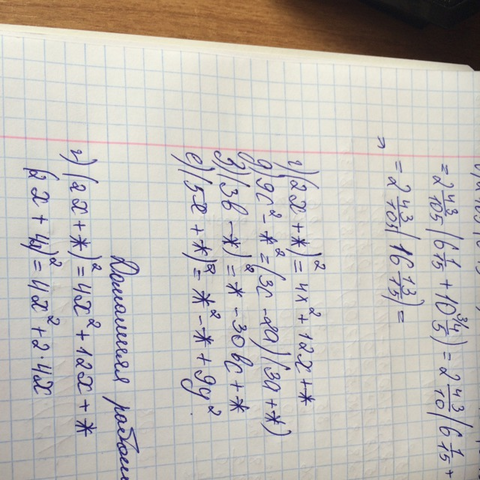 = 2 43/105 (6 1/15 + 10 3/4/5) = 2 43/10 (6 1/15 +
= 2 43/105 (16 13/15) =
г) (2x + *)² = 4x² + 12x + *
(3b - *)² = * - 30bc + *
е) (5x + *)² = *² - * + 9y²
Домашняя работа
г) (2x + *)² = 4x² + 12x + *
(2x + 4y)² = 4x² + 2·4x